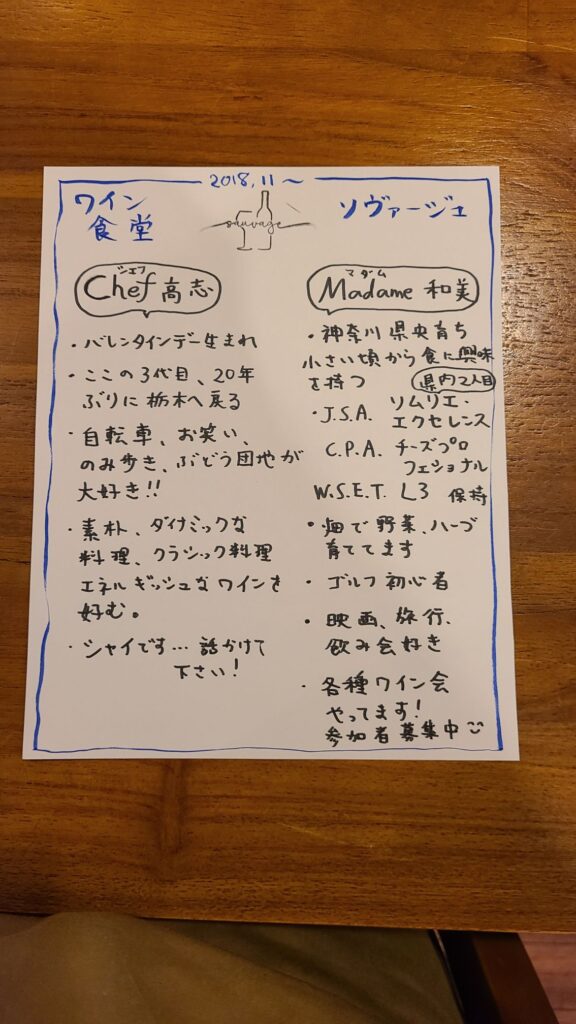 2018.11～
ワイン
食堂
sauvage
ソヴァージュ
シェフ
Chef 高志
・バレンタインデー生まれ
・ここの3代目、20年
ぶりに栃木へ戻る
・自転車、お笑い、
のみ歩き、ぶどう団地が
大好き!!
・素朴、ダイナミックな
料理、クラシック料理
エネルギッシュなワインを
好む。
・シャイです…話かけて
下さい!
マダム
Madame 和美
・神奈川県央育ち
小さい頃から食に興味
を持つ
県内2人目
・J.S.A. ソムリエ・
エクセレンス
C.P.A. チーズプロ
フェショナル
W.S.E.T. L3 保持
・畑で野菜、ハーブ
育ててます
・ゴルフ初心者
・映画、旅行、
飲み会好き
・各種ワイン会
やってます!
参加者募集中